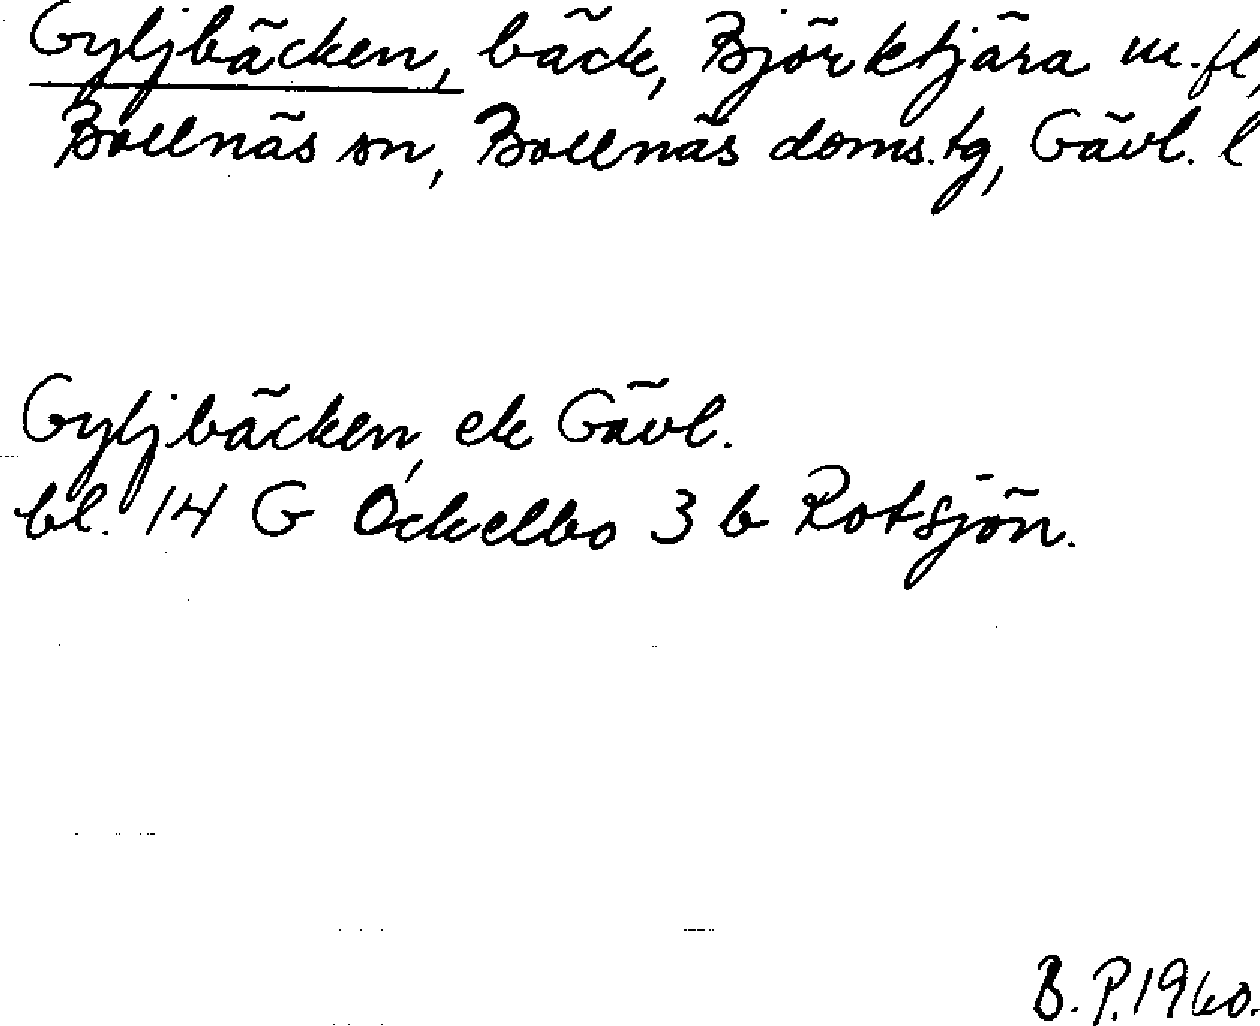 Gyljbäcken, bäck, Björktjära m.fl,
Bollnäs sn, Bollnäs doms.tg, Gävl. l
Gyljbäcken, ek Gävl.
bl. 14 G Ockelbo 3 b Rotsjön.
B.P. 1960.